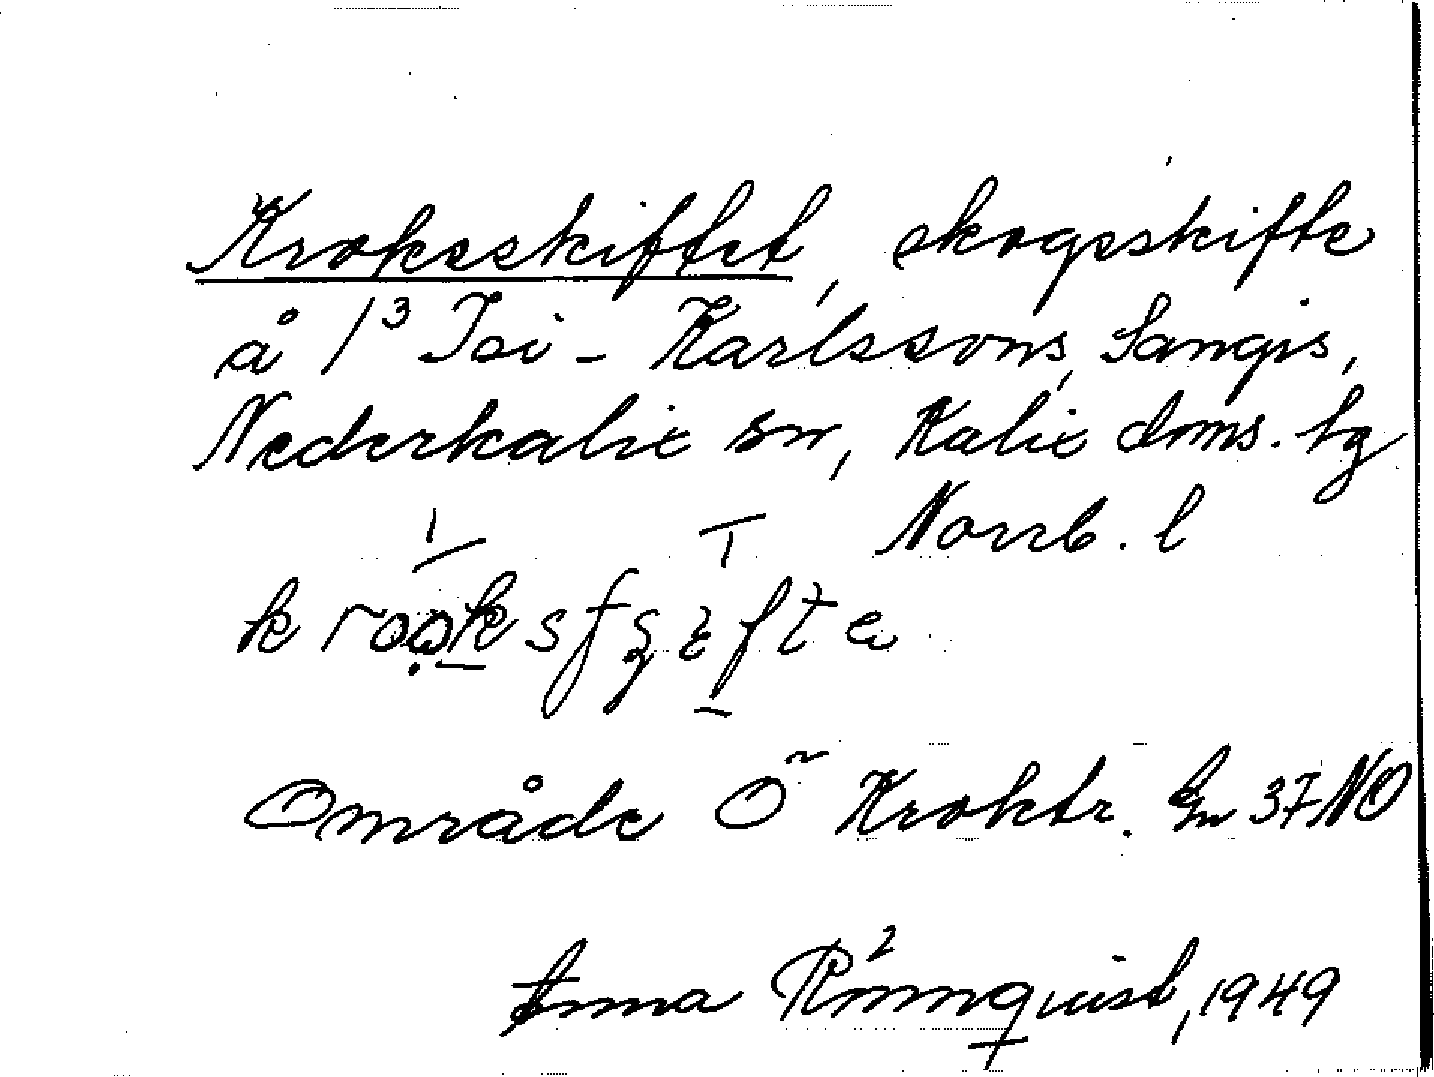 Krokeskiftet, skogsskifte
å 1³ Isi - Karlssons, Sangis,
Nederkalix sn, Kalix doms. hg
Norrb. l
Område Ö Kroktr. Gn 37 NO
Anna Rönnquist, 1949